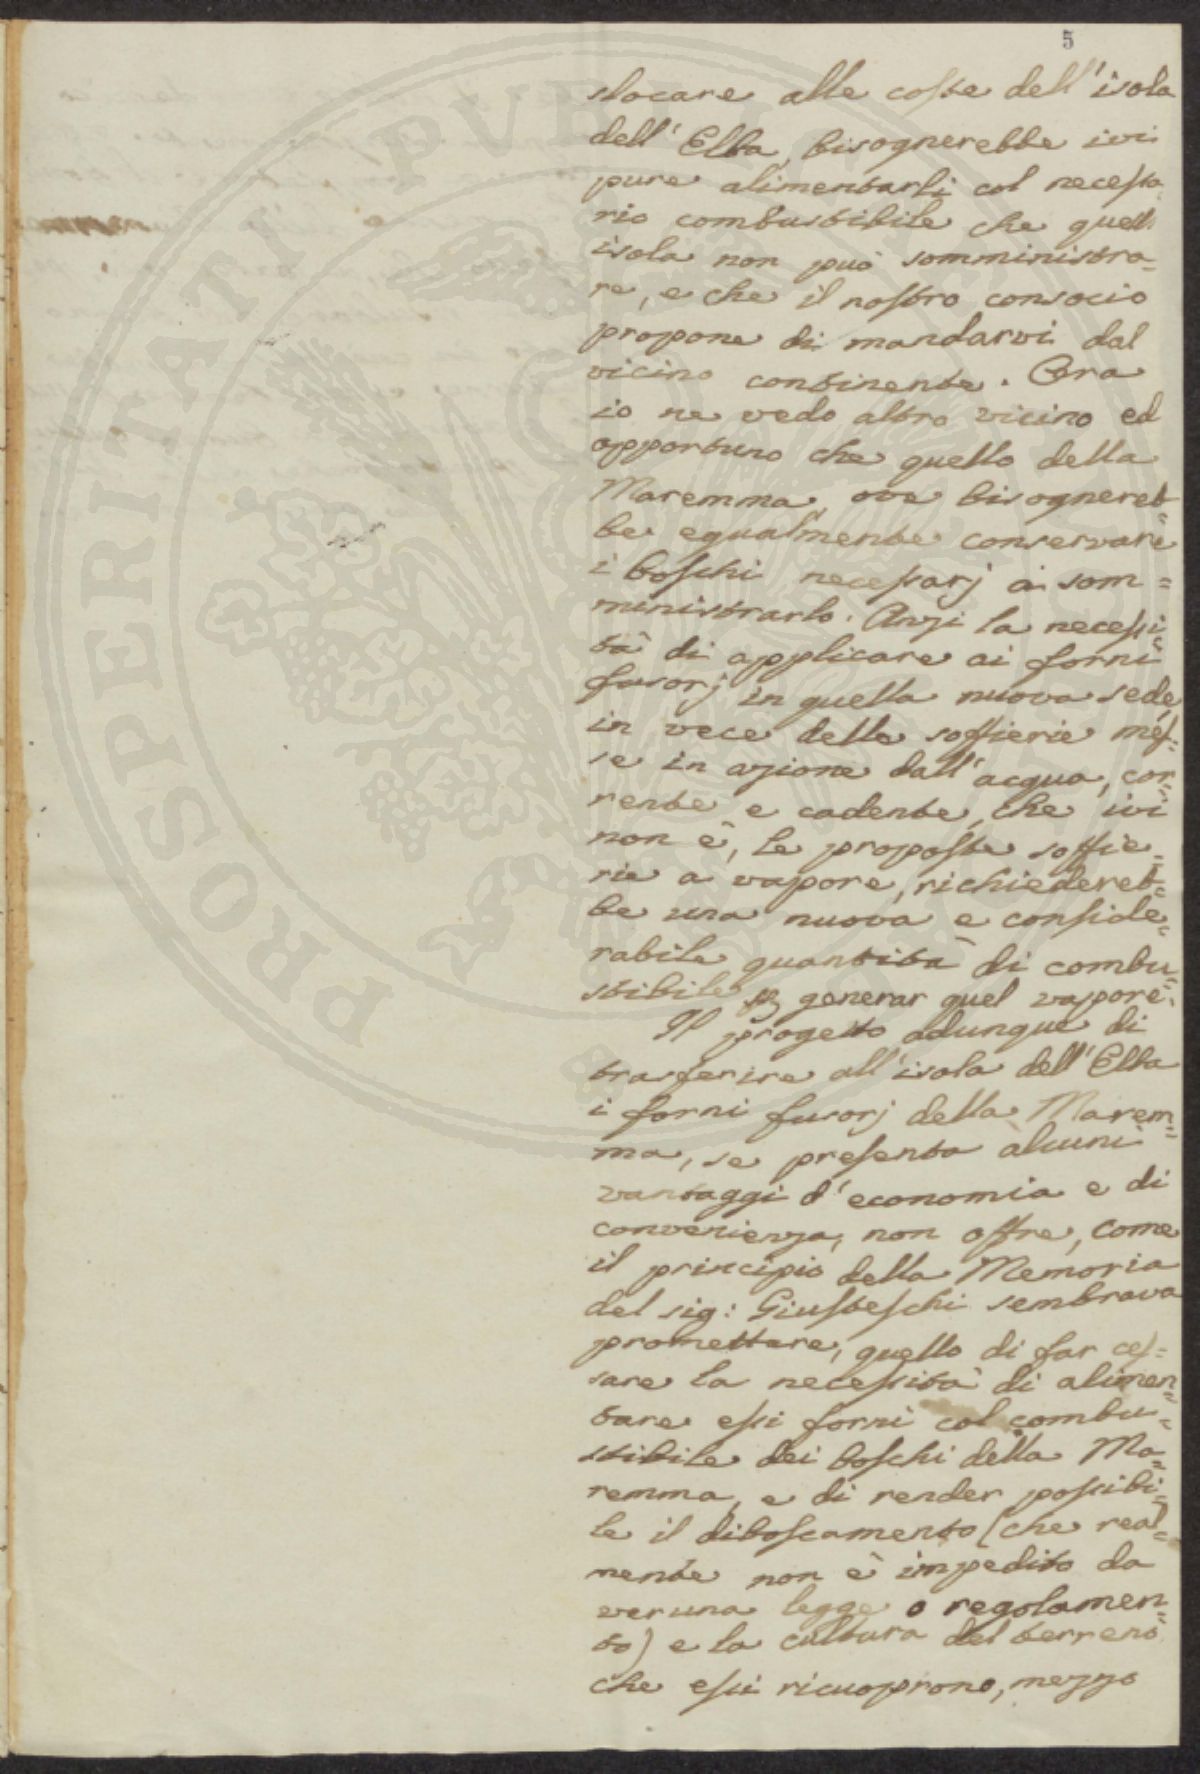 5
slocare alle coste dell'isola
dell'Elba, bisognerebbe ivi
pure alimentarli col necessa-
rio combustibile che quell'
isola non può somministra=
re, e che il nostro consocio
propone di mandarvi dal
vicino continente. Ora
io ne vedo altro vicino ed
opportuno che quello della
Maremma, ove bisognereb=
be egualmente conservare
i boschi necessarj a som=
ministrarlo. Anzi la necessi=
tà di applicare ai forni
fusorj in quella nuova sede,
in vece delle soffierie mes=
se in azione dall'acqua, cor=
rente e cadente, che ivi
non è, le proposte soffie=
rie a vapore, richiedereb=
be una nuova e conside=
rabile quantità di combu=
stibile per generar quel vapore.
Il progetto adunque di
trasferire all'isola dell'Elba
i forni fusorj della Marem=
ma, se presenta alcuni
vantaggi d'economia e di
convenienza, non offre, come
il principio della Memoria
del sig: Giusteschi sembrava
promettere, quello di far ces=
sare la necessità di alimen=
tare essi forni col combu=
stibile dei boschi della Ma=
remma, e di render possibi=
le il diboscamento (che real=
mente non è impedito da
veruna legge o regolamen=
to) e la cultura del terreno
che essi ricuoprono, mezzo
PROSPERITATI PVBLICAE